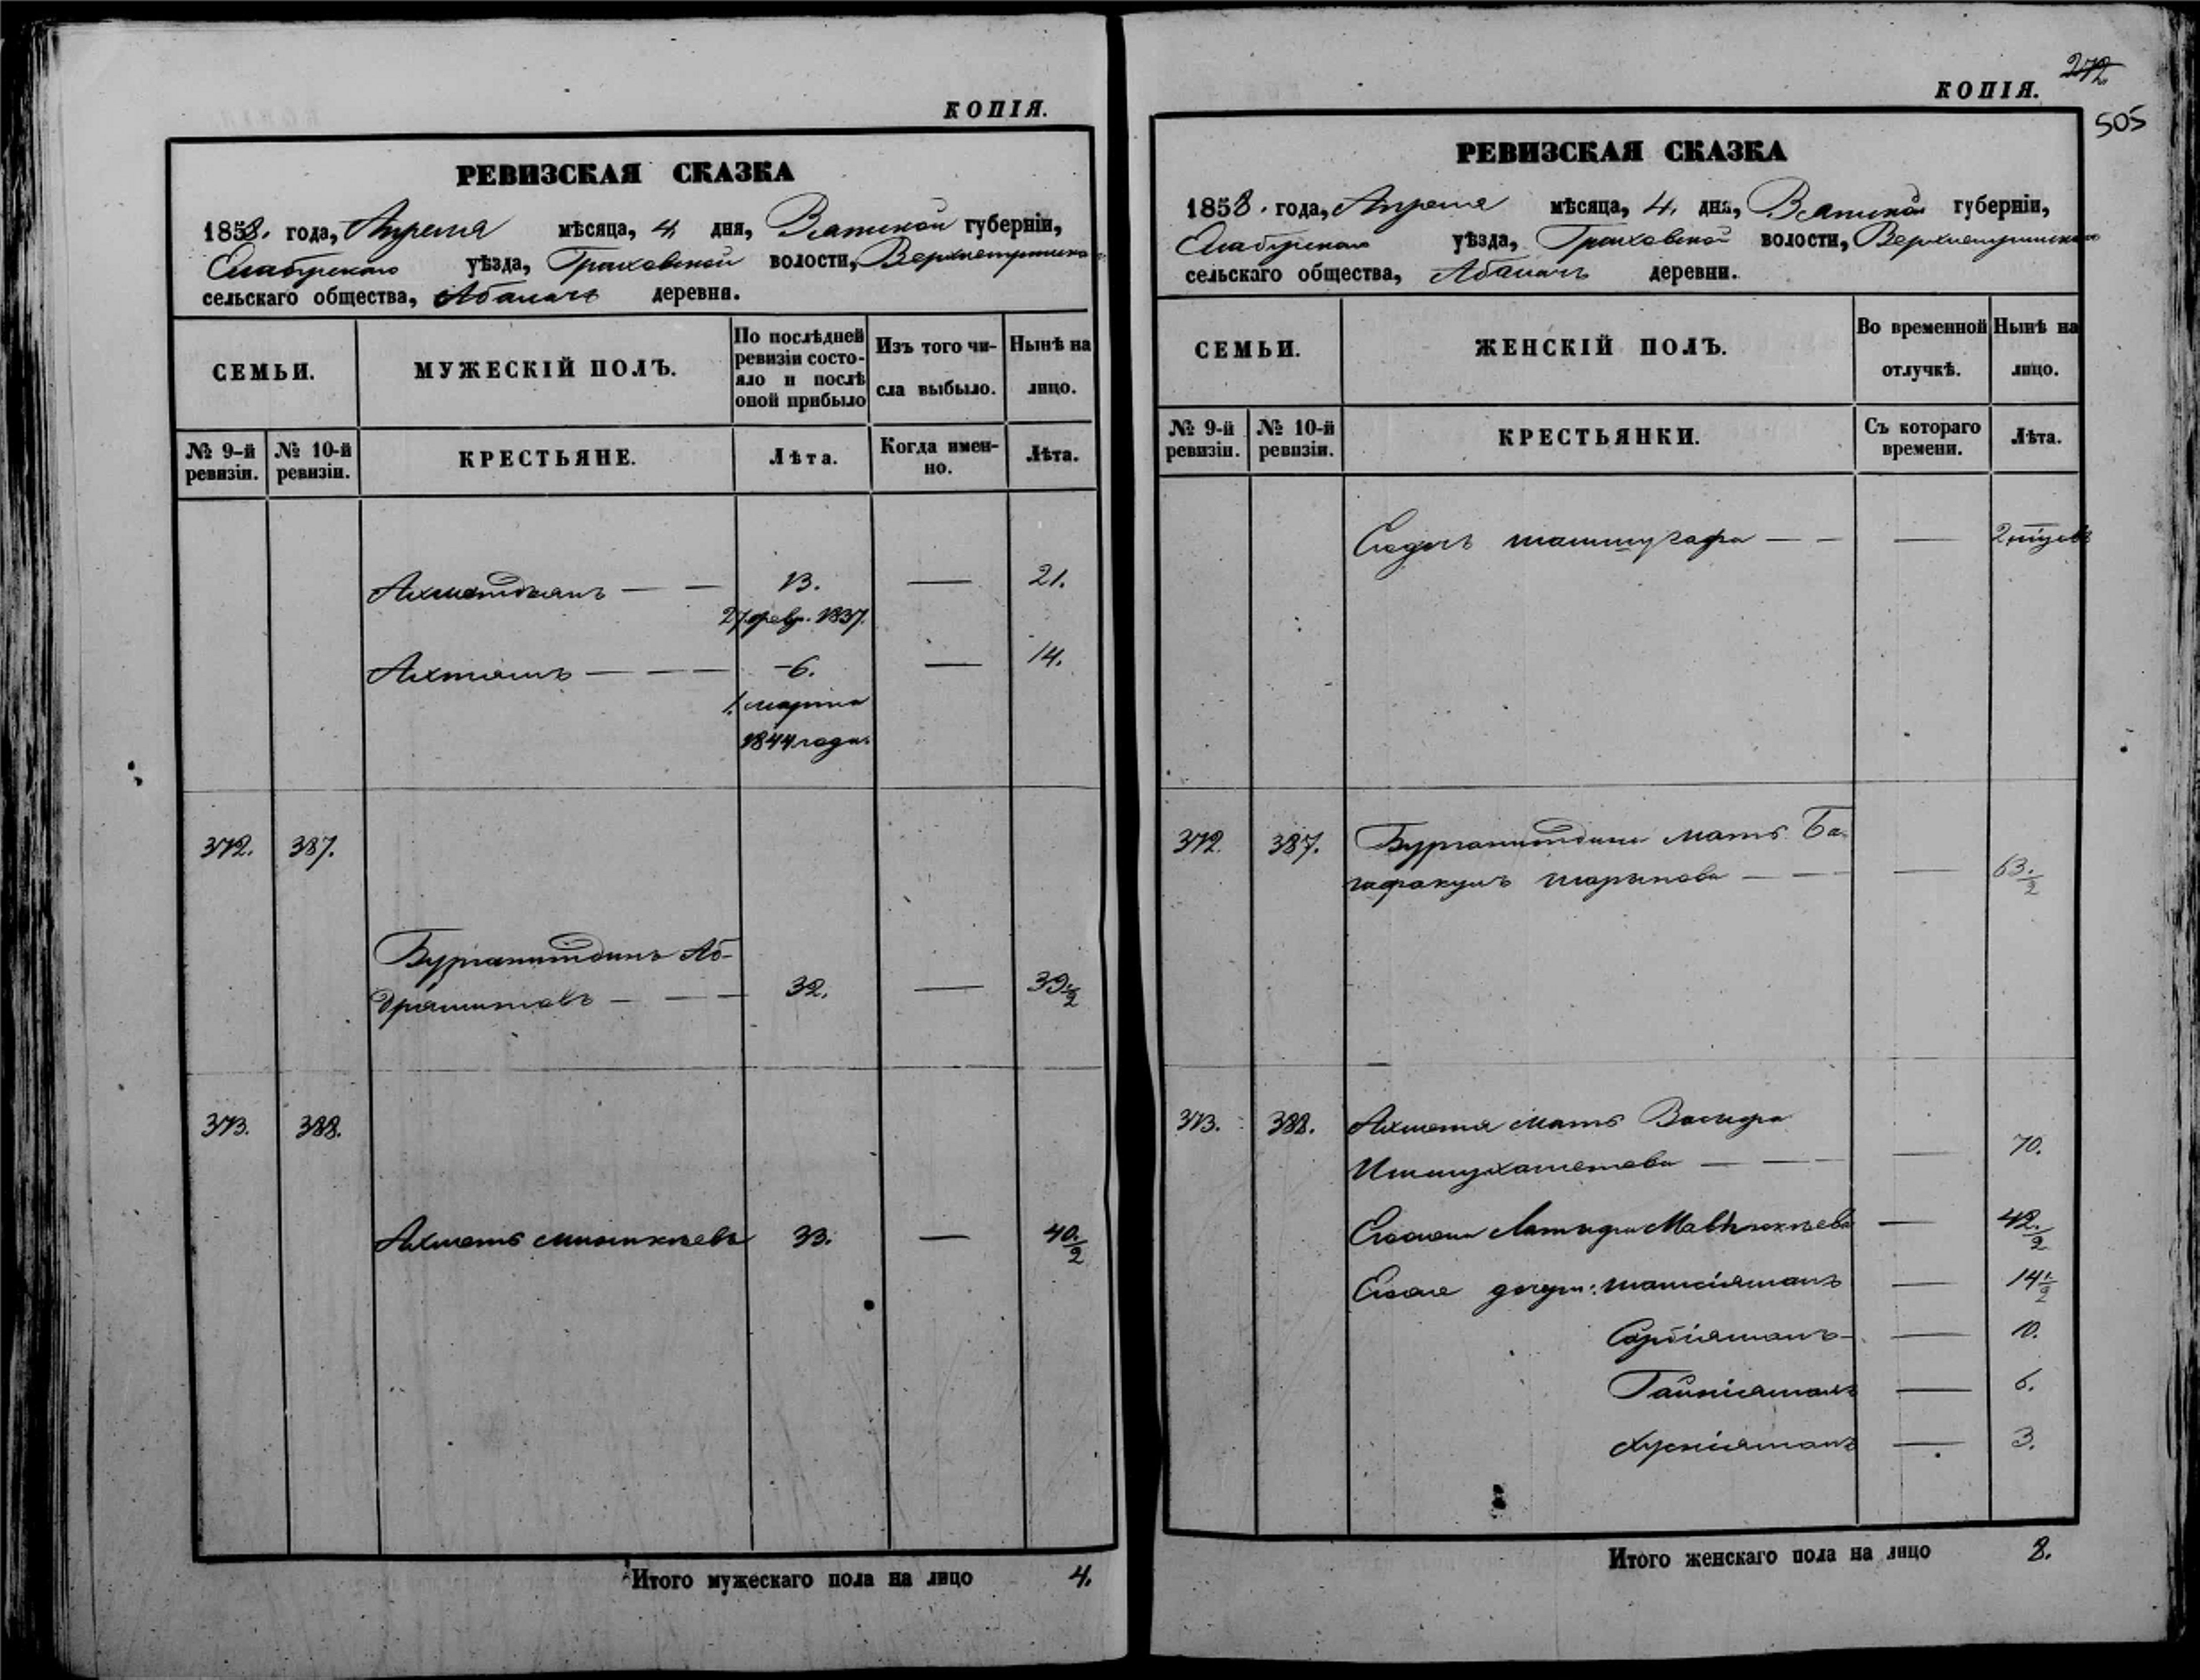 КОПІЯ.
РЕВИЗСКАЯ СКАЗКА
1858. года, Апреля мѣсяца, 4 дня, Вятской губерніи,
Елабугскаго уѣзда, Граховской волости,
сельскаго общества, деревни.
СЕМЬИ.
МУЖЕСКІЙ ПОЛЪ.
По послѣдней ревизіи состояло и послѣ оной прибыло
Изъ того числа выбыло.
Нынѣ на лицо.
№ 9-й ревизіи.
№ 10-й ревизіи.
КРЕСТЬЯНЕ.
Лѣта.
Когда именно.
Лѣта.
Ахметдзянъ — — 13. — 21.
27 февр. 1837.
Ахтямъ — — — 6. — 14.
1. марта
1844 года.
372. 387.
Бурганитдинъ Аб-
дряшитовъ — — — 32. — 39½
373. 388.
Ахметъ 33. — 40.½
Итого мужескаго пола на лицо 4.
КОПІЯ.
272
505
РЕВИЗСКАЯ СКАЗКА
1858. года, Апреля мѣсяца, 4. дня, Вятской губерніи,
Елабугскаго уѣзда, Граховской волости,
сельскаго общества, деревни.
СЕМЬИ.
ЖЕНСКІЙ ПОЛЪ.
Во временной отлучкѣ.
Нынѣ на лицо.
№ 9-й ревизіи.
№ 10-й ревизіи.
КРЕСТЬЯНКИ.
Съ котораго времени.
Лѣта.
— — —
372. 387. Бурганитдина мать Ба-
— — — 63.½
373. 388. Ахметя мать Васифа
Ишмухаметева — — — 70.
Латыфа — 42.½
дочери: — 14½
— 10.
— 6.
Хуснізяманъ — 3.
Итого женскаго пола на лицо 8.